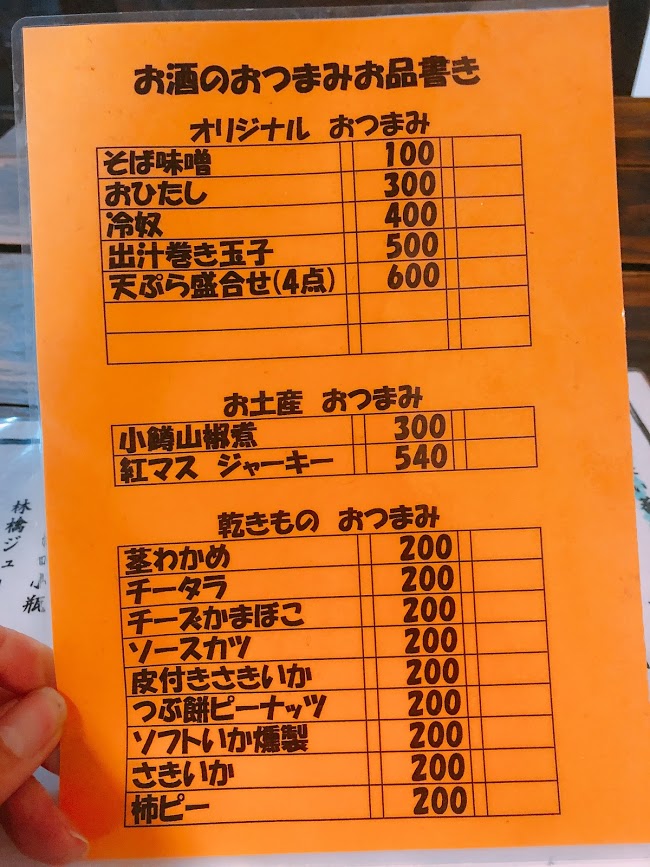 お酒のおつまみお品書き
オリジナル おつまみ
そば味噌 100
おひたし 300
冷奴 400
出汁巻き玉子 500
天ぷら盛合せ(4点) 600
お土産 おつまみ
小鱒山椒煮 300
紅マス ジャーキー 540
乾きもの おつまみ
茎わかめ 200
チータラ 200
チーズかまぼこ 200
ソースカツ 200
皮付きさきいか 200
つぶ餅ピーナッツ 200
ソフトいか燻製 200
さきいか 200
柿ピー 200
林檎ジュ
小瓶